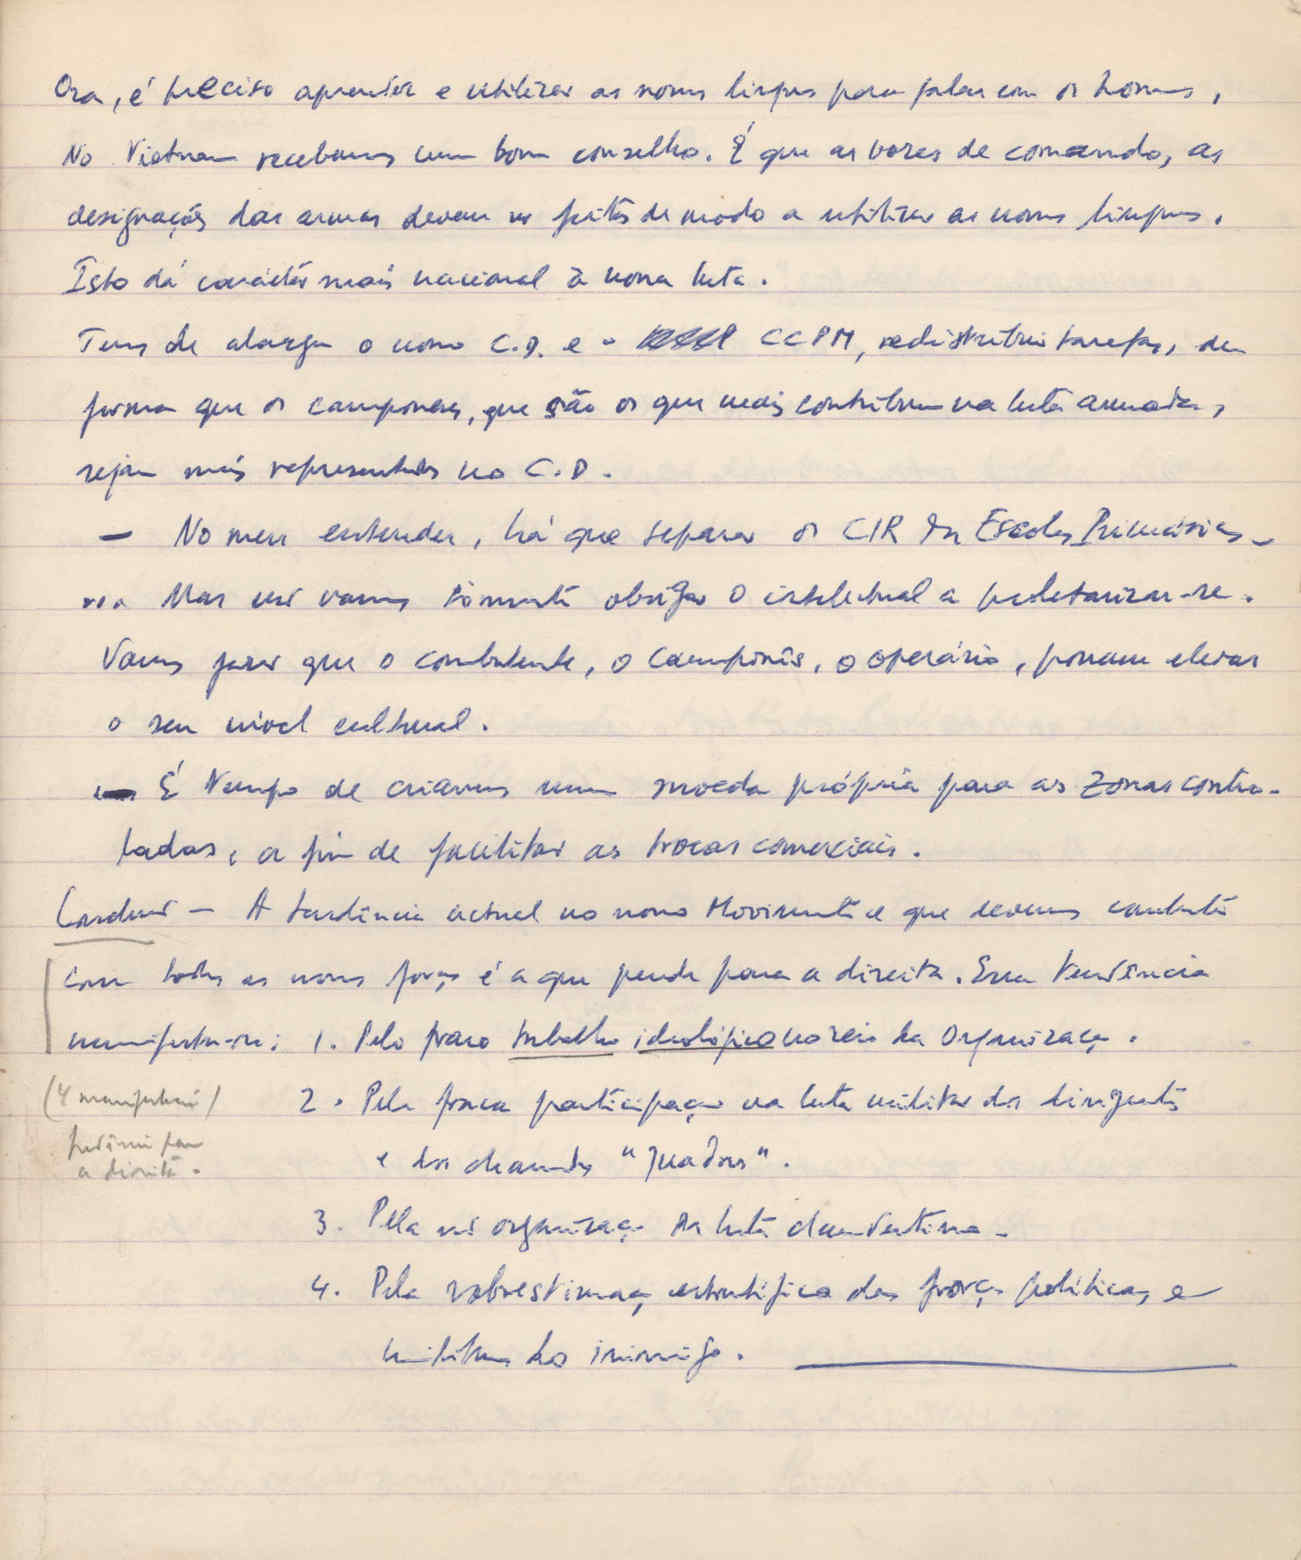 Ora, é preciso aprender e utilizar as nossas línguas para falar com os homens,
No Vietnam recebemos um bom conselho. É que as vozes de comando, as
designações das armas devem ser feitas de modo a utilizar as nossas línguas.
Isto dá carácter mais nacional à nossa luta.
Temos de alargar o nosso C.D. e o CCPM, redistribuir tarefas, de
forma que os camponeses, que são os que mais contribuem na luta armada,
sejam mais representados no C.D.
— No meu entender, há que separar os CIR das Escolas Primárias
Mas não vamos somente obrigar o intelectual a proletarizar-se.
Vamos fazer que o combatente, o camponês, o operário, possam elevar
o seu nível cultural.
— É tempo de criarmos uma moeda própria para as zonas contro-
ladas, a fim de facilitar as trocas comerciais.
— A tendência actual no nosso Movimento e que devemos combater
com todas as nossas forças é a que pende para a direita. Essa tendência
manifesta-se: 1. Pelo fraco trabalho ideológico no seio da Organização.
(4 manifestações)
2. Pela fraca participação na luta militar dos dirigentes
tendência para
a direita.
e dos chamados "quadros".
3. Pela má organização da luta clandestina.
4. Pela sobrestimação das forças políticas e
militares do inimigo.